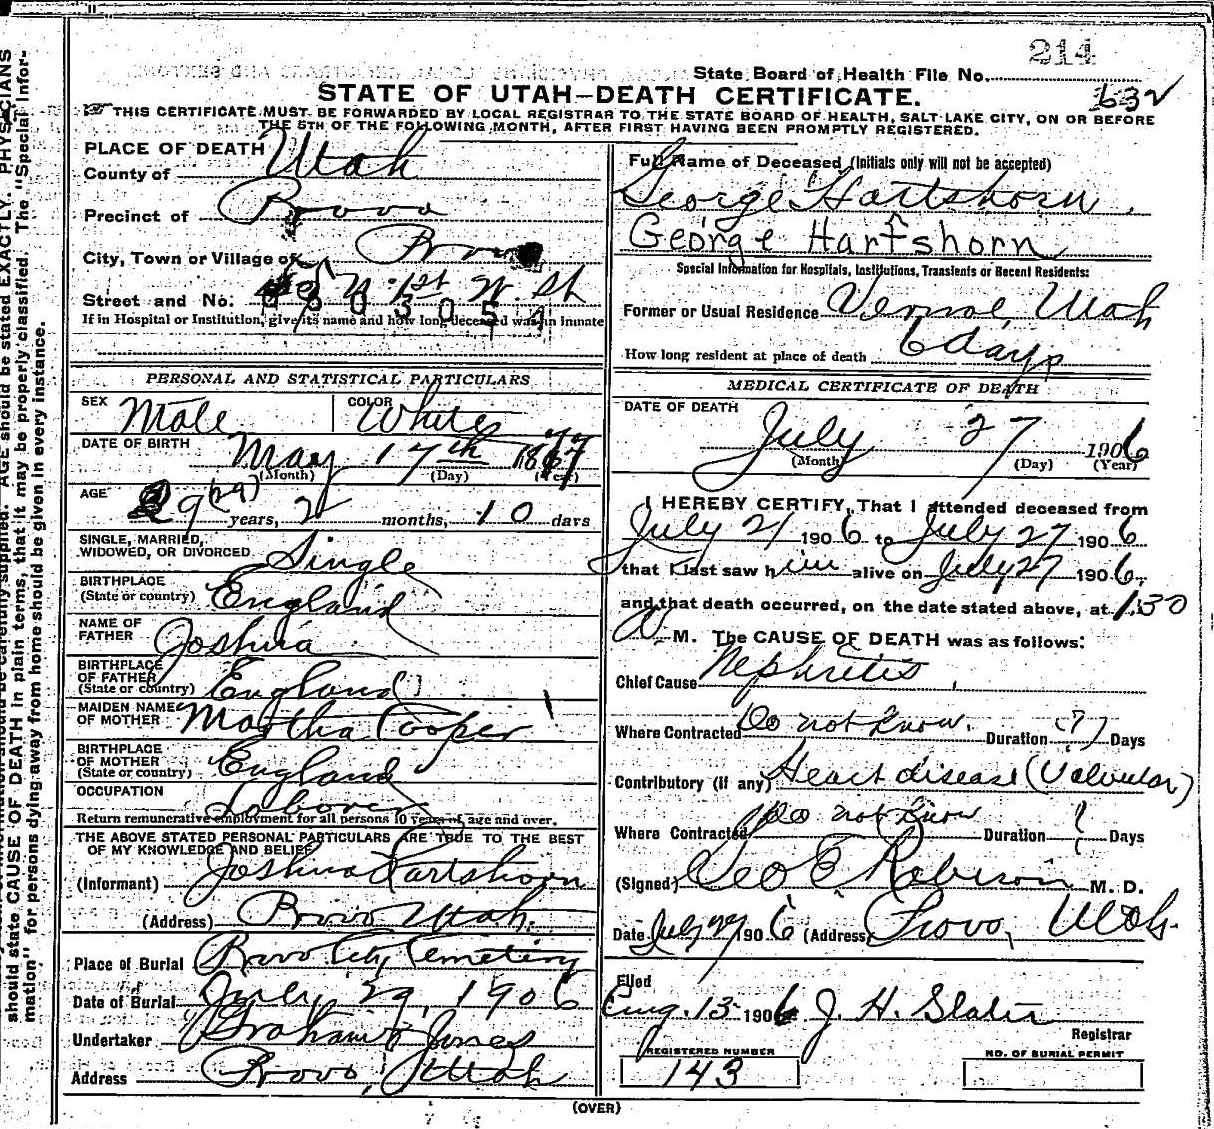 214
State Board of Health File No.
STATE OF UTAH—DEATH CERTIFICATE.
632
THIS CERTIFICATE MUST BE FORWARDED BY LOCAL REGISTRAR TO THE STATE BOARD OF HEALTH, SALT LAKE CITY, ON OR BEFORE
THE 5TH OF THE FOLLOWING MONTH, AFTER FIRST HAVING BEEN PROMPTLY REGISTERED.
PLACE OF DEATH
County of Utah
Precinct of Provo
City, Town or Village of Provo
Street and No. N. 1st W. St
If in Hospital or Institution, give its name and how long deceased was an inmate
PERSONAL AND STATISTICAL PARTICULARS
SEX Male COLOR White
DATE OF BIRTH May 17th 1877
(Month) (Day) (Year)
AGE 29 (29) years, 2 months, 10 days
SINGLE, MARRIED,
WIDOWED, OR DIVORCED Single
BIRTHPLACE
(State or country) England
NAME OF
FATHER Joshua
BIRTHPLACE
OF FATHER
(State or country) England
MAIDEN NAME
OF MOTHER Martha Cooper
BIRTHPLACE
OF MOTHER
(State or country) England
OCCUPATION Laborer
Return remunerative employment for all persons 10 years of age and over.
THE ABOVE STATED PERSONAL PARTICULARS ARE TRUE TO THE BEST
OF MY KNOWLEDGE AND BELIEF
(Informant) Joshua Hartshorn
(Address) Provo Utah.
Place of Burial Provo City Cemetery
Date of Burial July 29, 1906
Undertaker Graham & Jones
Address Provo, Utah
Full Name of Deceased (Initials only will not be accepted)
George Hartshorn.
George Hartshorn
Special Information for Hospitals, Institutions, Transients or Recent Residents:
Former or Usual Residence Vernal, Utah
How long resident at place of death 6 days
MEDICAL CERTIFICATE OF DEATH
DATE OF DEATH
July 27 1906
(Month) (Day) (Year)
I HEREBY CERTIFY, That I attended deceased from
July 21 1906 to July 27 1906
that I last saw him alive on July 27 1906,
and that death occurred, on the date stated above, at 1.30
M. The CAUSE OF DEATH was as follows:
Chief Cause Nephritis
Where Contracted Do not know. Duration (?) Days
Contributory (if any) Heart disease (Valvular)
Where Contracted Do not know Duration ? Days
(Signed) Geo E Robison M. D.
Date July 27 1906 (Address) Provo, Utah.
Filed
Aug. 13 1906 J. H. Slater
Registrar
REGISTERED NUMBER
143
NO. OF BURIAL PERMIT
(OVER)
should state CAUSE OF DEATH in plain terms, that it may be properly classified. The "Special Infor-
mation" for persons dying away from home should be given in every instance.